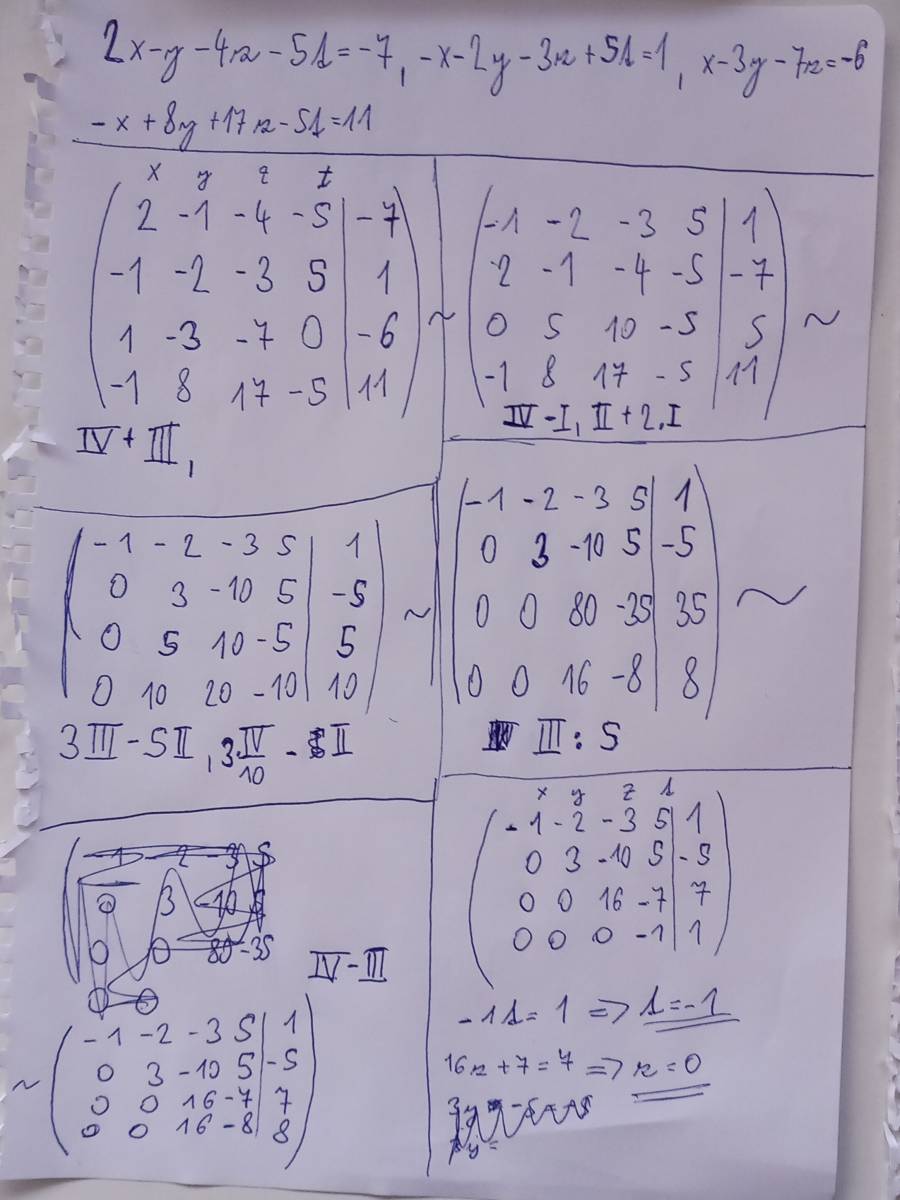 2x-y-4z-5t=-7, -x-2y-3z+5t=1, x-3y-7z=-6
-x+8y+17z-5t=11
x y z t
2 -1 -4 -5 | -7
-1 -2 -3 5 | 1
1 -3 -7 0 | -6
-1 8 17 -5 | 11
~
IV+III,
-1 -2 -3 5 | 1
2 -1 -4 -5 | -7
0 5 10 -5 | 5
-1 8 17 -5 | 11
~
IV-I, II+2.I
-1 -2 -3 5 | 1
0 3 -10 5 | -5
0 5 10 -5 | 5
0 10 20 -10 | 10
~
3III-5II, 3·IV/10 - II
-1 -2 -3 5 | 1
0 3 -10 5 | -5
0 0 80 -35 | 35
0 0 16 -8 | 8
~
III:5
IV-III
~
-1 -2 -3 5 | 1
0 3 -10 5 | -5
0 0 16 -7 | 7
0 0 16 -8 | 8
x y z t
-1 -2 -3 5 | 1
0 3 -10 5 | -5
0 0 16 -7 | 7
0 0 0 -1 | 1
-1t=1 => t=-1
16z+7=7 => z=0